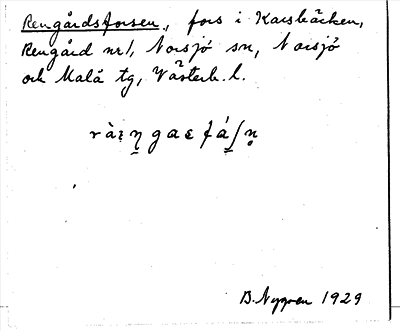 Rengårdsforsen, fors i Karsbäcken,
Rengård nr 1, Norsjö sn, Norsjö
och Malå tg, Västerb. l.
B. Nygren 1929